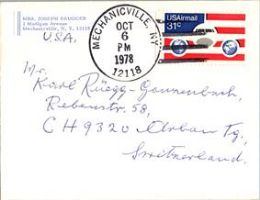 MRS. JOSEPH SAUNDER
2 Madigan Avenue
Mechanicville, N. Y. 12118
U.S.A.
MECHANICVILLE, NY
OCT
6
PM
1978
12118
USAirmail
31c
Mr.
Karl Rüegg-Gonnenbach,
Rebenstr. 58,
CH 9320 Arbon Tg,
Switzerland.